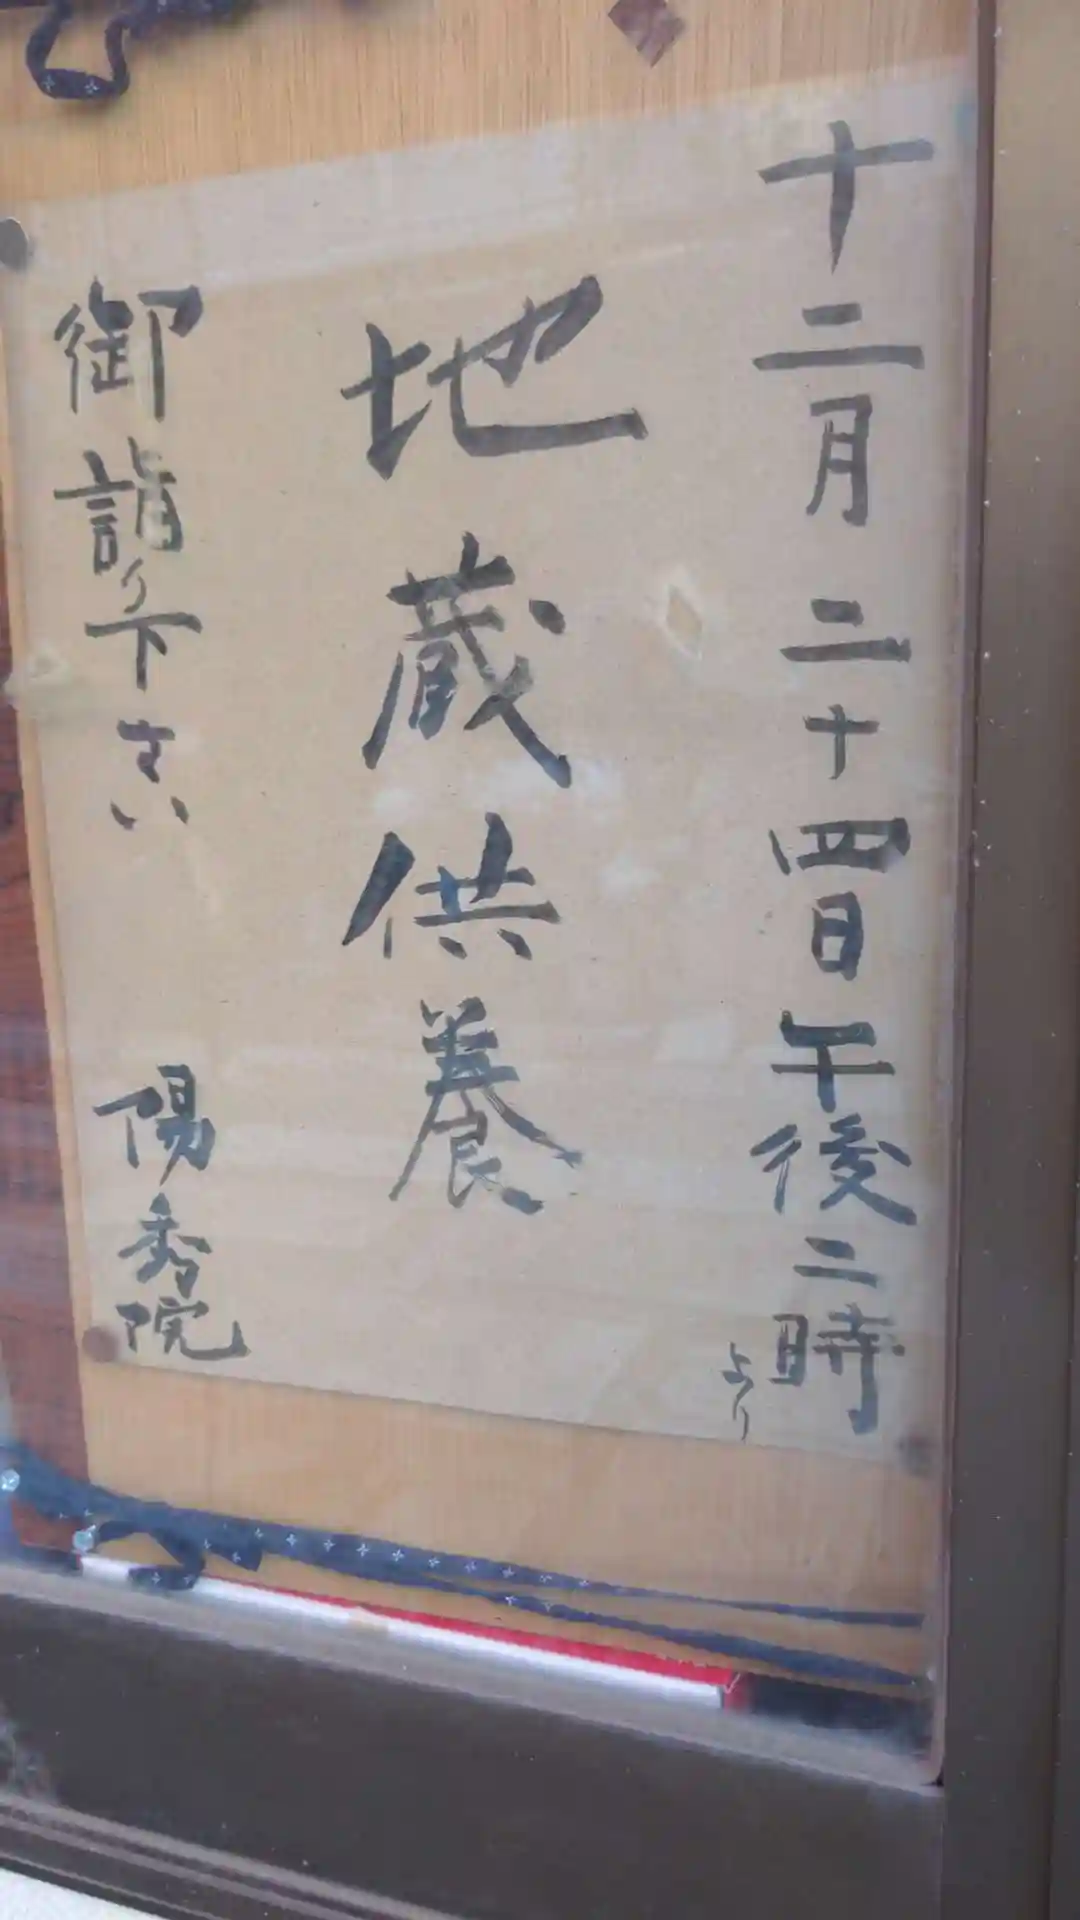 十二月二十四日午後二時
より
地蔵供養
御詣り下さい
陽秀院